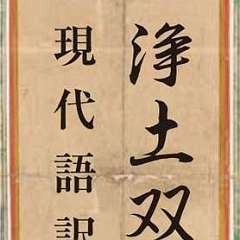 浄土双
現代語訳